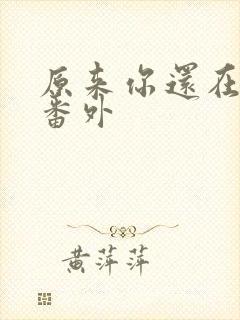 原来你還在
番外
黄萍萍